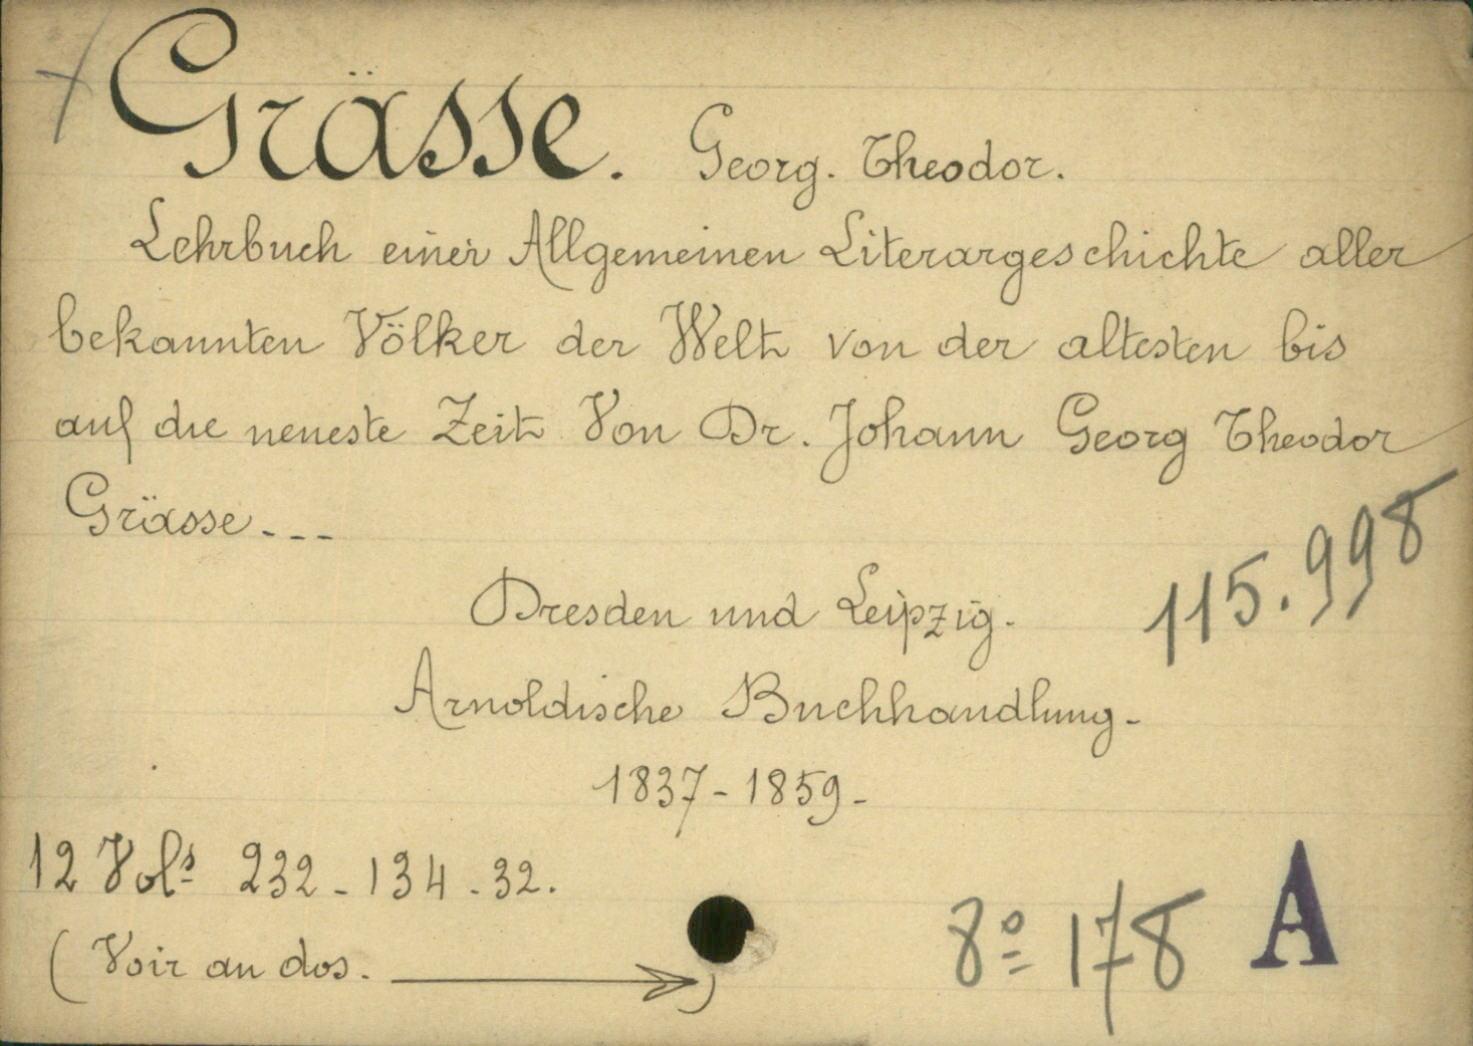 Grässe. Georg. Theodor.
Lehrbuch einer Allgemeinen Literargeschichte aller
bekannten Völker der Welt von der altesten bis
auf die neueste Zeit Von Dr. Johann Georg Theodor
Grässe ---
115.998
Dresden und Leipzig.
Arnoldische Buchhandlung.
1837-1859-
12 Vols 232-134-32.
(Voir au dos. →)
8º 178 A